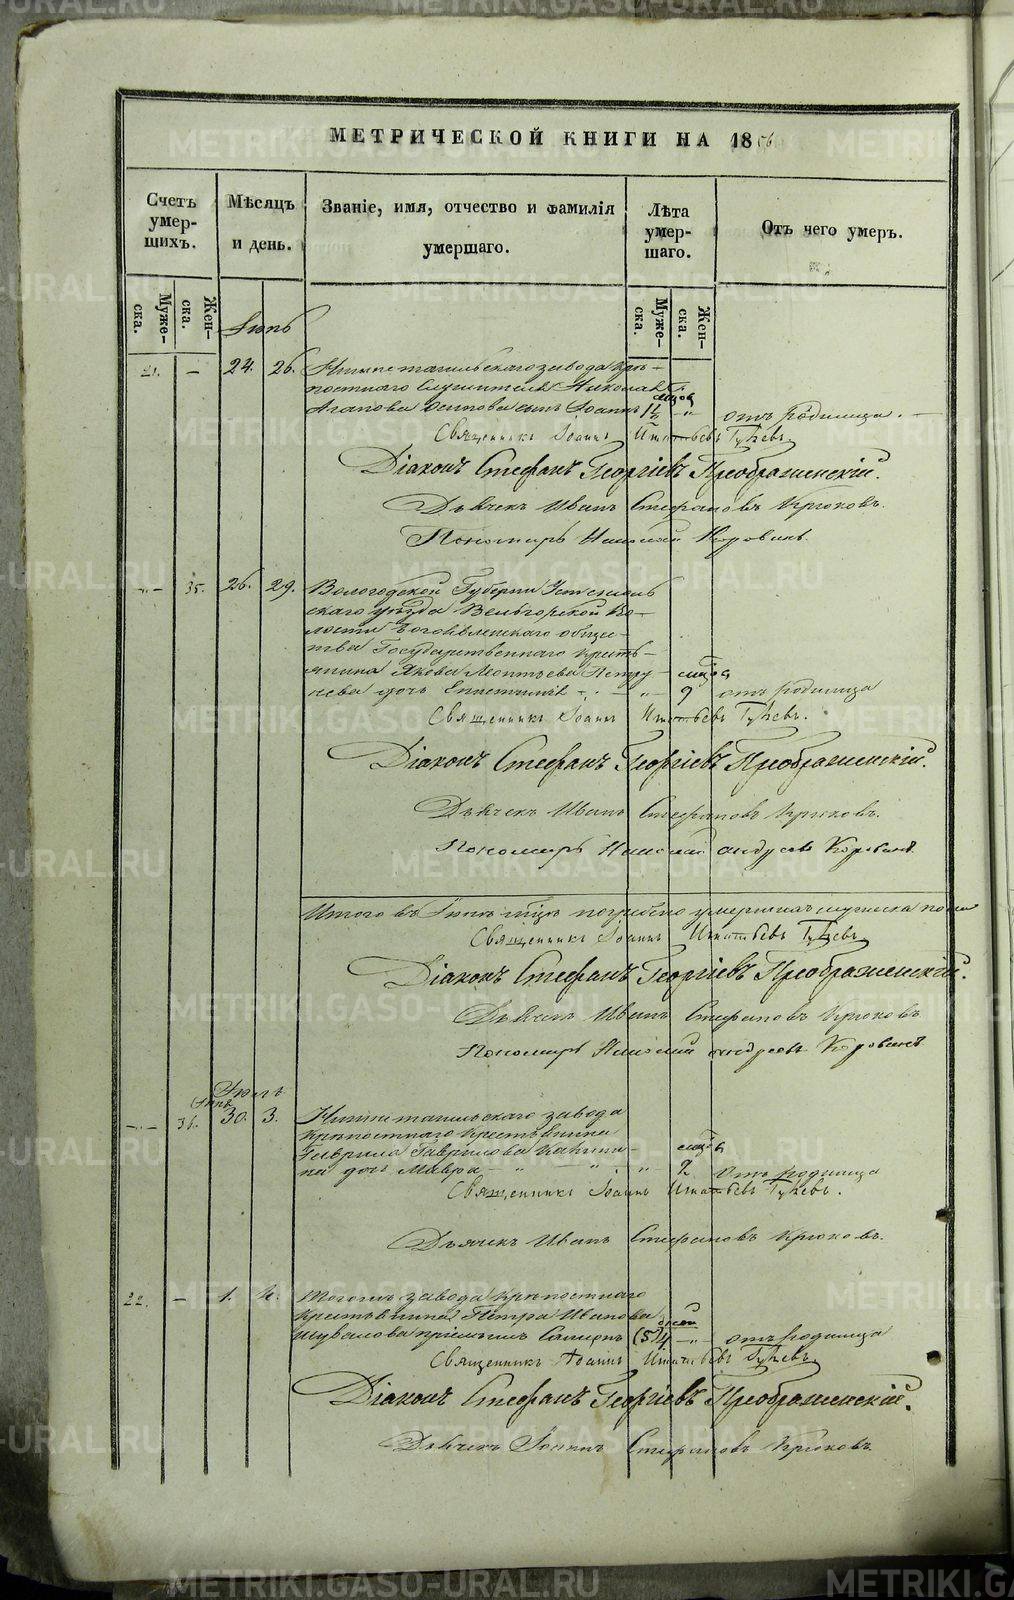 МЕТРИЧЕСКОЙ КНИГИ НА 1856
Счетъ умер-шихъ.
Мѣсяцъ и день.
Званіе, имя, отчество и фамилія умершаго.
Лѣта умер-шаго.
Отъ чего умеръ.
Муже-ска.
Жен-ска.
Муже-ска.
Жен-ска.
Іюнь
21. — 24. 26. Нижнетагильскаго завода крѣ-
постнаго служителя Николая
Агапова Осипова сынъ Іоаннъ 1½ „ отъ родимца. —
Священникъ Іоаннъ Игнатьевъ
Діаконъ Стефанъ Георгіевъ Преображенскій.
Дьячекъ Иванъ Стефановъ Крюковъ.
Пономарь Николай Коровинъ
35. 26. 29. Вологодской Губерніи Устсысоль
скаго уѣзда Вельгорской во-
лости общес-
тва Государственнаго кресть-
янина Якова Леонтьева Петру-
нева дочь 9 отъ родимца
Священникъ Іоаннъ Игнатьевъ
Діаконъ Стефанъ Георгіевъ Преображенскій.
Дьячекъ Иванъ Стефановъ Крюковъ.
Пономарь Николай Андреевъ Коровинъ
Итого въ Іюнѣ мцѣ погребено умершихъ мужеска пола
Священникъ Іоаннъ Игнатьевъ
Діаконъ Стефанъ Георгіевъ Преображенскій.
Дьячекъ Иванъ Стефановъ Крюковъ
Пономарь Николай Андреевъ Коровинъ
Іюль
Іюнь
36. 30. 3. Нижнетагильскаго завода
крѣпостнаго крестьянина
Гаврила Гаврилова
на дочь Мавра „ „ „ 2 отъ родимца
Священникъ Іоаннъ Игнатьевъ
Дьячекъ Иванъ Стефановъ Крюковъ.
22. — 1. 4. Тогожъ завода крѣпостнаго
крестьянина Петра Иванова
Шувалова пріемышъ (5) „ отъ родимца
Священникъ Іоаннъ Игнатьевъ
Діаконъ Стефанъ Георгіевъ Преображенскій.
Дьячекъ Іоаннъ Стефановъ Крюковъ
METRIKI.GASO-URAL.RU